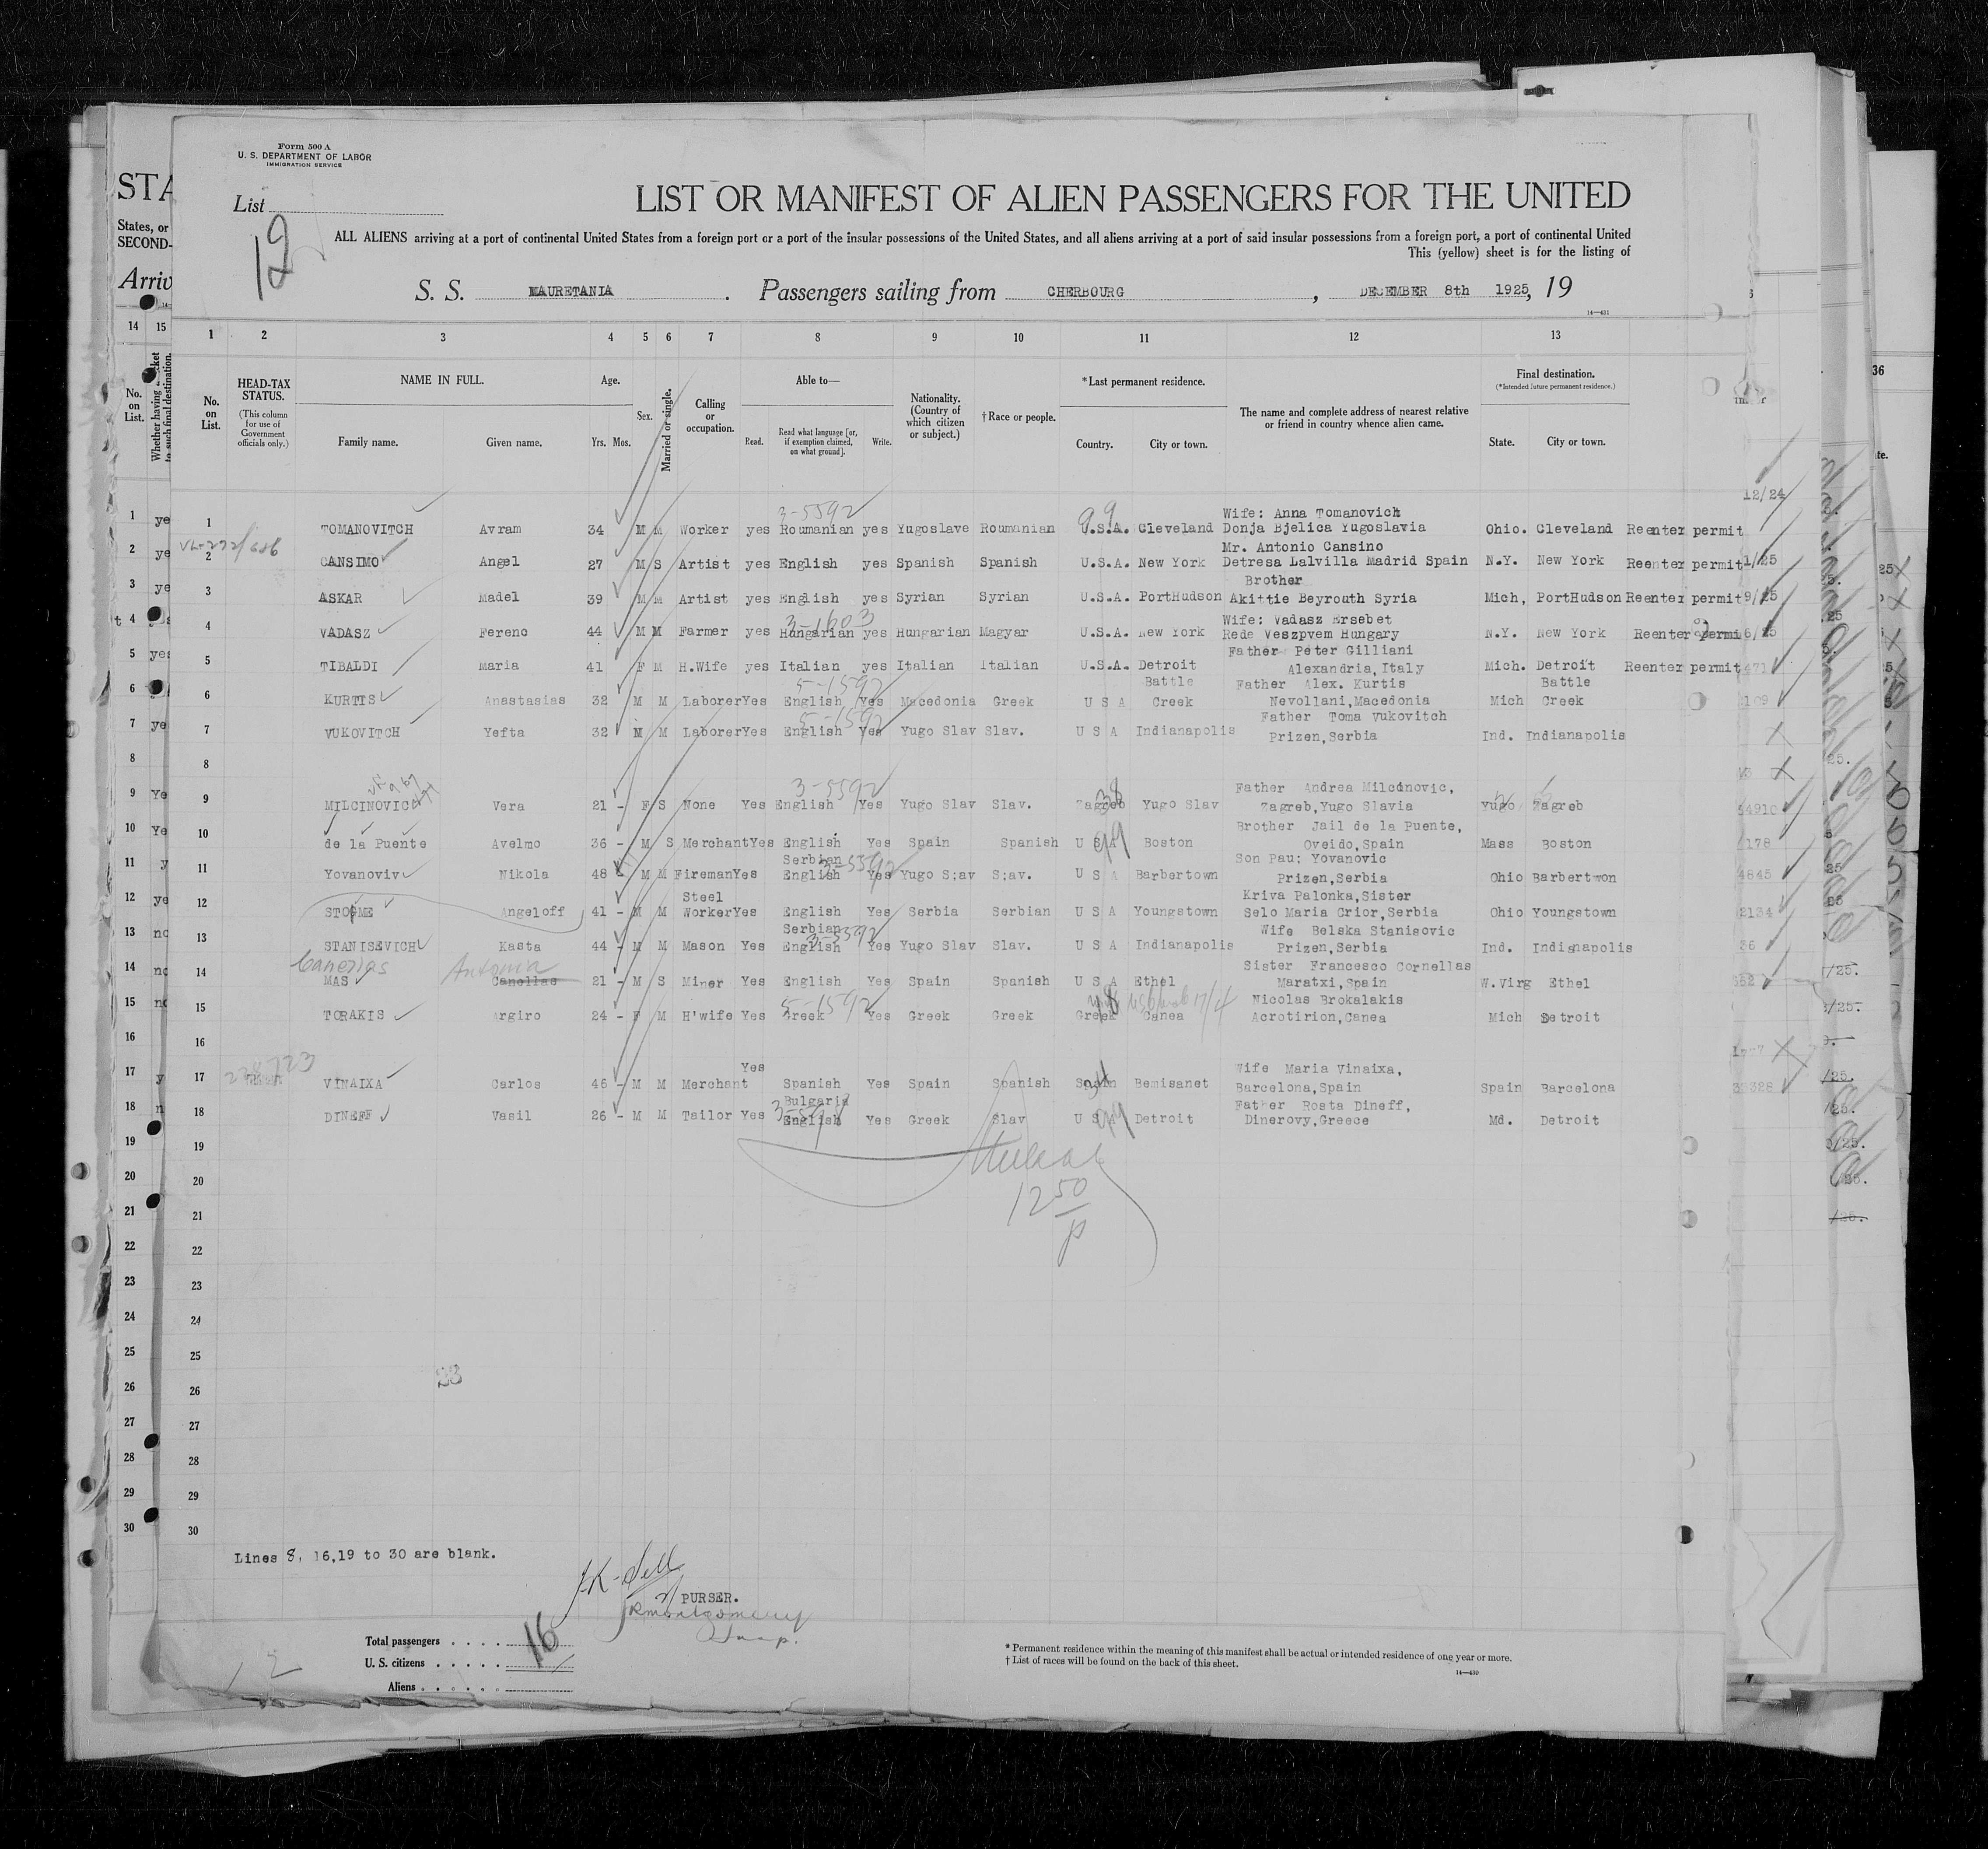 Form 500 A
U. S. DEPARTMENT OF LABOR
IMMIGRATION SERVICE
List
12
LIST OR MANIFEST OF ALIEN PASSENGERS FOR THE UNITED
ALL ALIENS arriving at a port of continental United States from a foreign port or a port of the insular possessions of the United States, and all aliens arriving at a port of said insular possessions from a foreign port, a port of continental United
This (yellow) sheet is for the listing of
S. S. MAURETANIA. Passengers sailing from CHERBOURG, DECEMBER 8th 1925, 19
14—431
1 2 3 4 5 6 7 8 9 10 11 12 13
No. on List.
HEAD-TAX STATUS.
(This column for use of Government officials only.)
NAME IN FULL.
Family name. Given name.
Age.
Yrs. Mos.
Sex.
Married or single.
Calling or occupation.
Able to—
Read. Read what language [or, if exemption claimed, on what ground]. Write.
Nationality. (Country of which citizen or subject.)
†Race or people.
*Last permanent residence.
Country. City or town.
The name and complete address of nearest relative or friend in country whence alien came.
Final destination.
(*Intended future permanent residence.)
State. City or town.
3-5592 Wife: Anna Tomanovich 12/24
1 TOMANOVITCH Avram 34 M M Worker yes Roumanian yes Yugoslave Roumanian U.S.A. Cleveland Donja Bjelica Yugoslavia Ohio. Cleveland Reenter permit
Mr. Antonio Cansino
2 CANSIMO Angel 27 M S Artist yes English yes Spanish Spanish U.S.A. New York Detresa Lalvilla Madrid Spain N.Y. New York Reenter permit 1/25
Brother
3 ASKAR Madel 39 M M Artist yes English yes Syrian Syrian U.S.A. PortHudson Akittie Beyrouth Syria Mich, PortHudson Reenter permit 9/25
3-1603 Wife: Vadasz Ersebet
4 VADASZ Ferenc 44 M M Farmer yes Hungarian yes Hungarian Magyar U.S.A. New York Rede Veszpvem Hungary N.Y. New York Reenter permi 6/25
Father Peter Gilliani
5 TIBALDI Maria 41 F M H.Wife yes Italian yes Italian Italian U.S.A. Detroit Alexandria, Italy Mich. Detroit Reenter permit
5-1592 Battle Father Alex. Kurtis Battle
6 KURTIS Anastasias 32 M M Laborer Yes English Yes Macedonia Greek U S A Creek Nevollani,Macedonia Mich Creek 109
5-1592 Father Toma Vukovitch
7 VUKOVITCH Yefta 32 M M Laborer Yes English Yes Yugo Slav Slav. U S A Indianapolis Prizen,Serbia Ind. Indianapolis
8
3-5592 Father Andrea Milcinovic,
9 MILCINOVIC Vera 21 - F S None Yes English Yes Yugo Slav Slav. Zagreb Yugo Slav Zagreb,Yugo Slavia Yugo Zagreb 54910
Brother Jail de la Puente,
10 de la Puente Avelmo 36 - M S Merchant Yes English Yes Spain Spanish U S A Boston Oveido,Spain Mass Boston 178
Serbian Son Pau: Yovanovic
11 Yovanoviv Nikola 48 - M M Fireman Yes English Yes Yugo S;av S;av. U S A Barbertown Prizen,Serbia Ohio Barbertwon 4845
Steel Kriva Palonka,Sister
12 STOGME Angeloff 41 - M M Worker Yes English Yes Serbia Serbian U S A Youngstown Selo Maria Crior,Serbia Ohio Youngstown 2134
Serbian Wife Belska Stanisovic
13 STANISEVICH Kasta 44 - M M Mason Yes English Yes Yugo Slav Slav. U S A Indianapolis Prizen,Serbia Ind. Indianapolis 36
Antonia Sister Francesco Cornellas
14 MAS Canellas 21 - M S Miner Yes English Yes Spain Spanish U S A Ethel Maratxi,Spain W.Virg Ethel
5-1592 Nicolas Brokalakis
15 TORAKIS Argiro 24 - F M H'wife Yes Greek Yes Greek Greek Greek Canea Acrotirion,Canea Mich Detroit
16
Yes Wife Maria Vinaixa,
17 VINAIXA Carlos 46 - M M Merchant Spanish Yes Spain Spanish Spain Bemisanet Barcelona,Spain Spain Barcelona 23328
Bulgaria Father Rosta Dineff,
18 DINEFF Vasil 26 - M M Tailor Yes English Yes Greek Slav U S A Detroit Dinerovy,Greece Md. Detroit
19
20
21
22
23
24
25
26
27
28
29
30
12 50/p
23
Lines 8, 16,19 to 30 are blank.
PURSER.
Total passengers 16
U. S. citizens
Aliens
* Permanent residence within the meaning of this manifest shall be actual or intended residence of one year or more.
† List of races will be found on the back of this sheet.
14—430
12
STA
States, or
SECOND-
Arriv
14 15
No. on List.